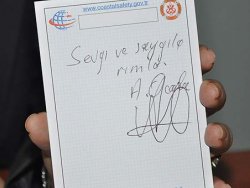 www.coastalsafety.gov.tr
Sevgi ve saygıla
rımla.